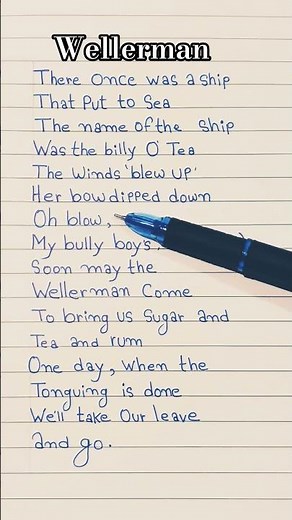 Wellerman
There once was a ship
That Put to Sea
The name of the ship
Was the billy O' Tea
The Winds 'blew UP'
Her bow dipped down
Oh blow,
My bully boys
Soon may the
Wellerman Come
To bring us Sugar and
Tea and rum
One day, when the
Tonguing is done
We'll take Our leave
and go.